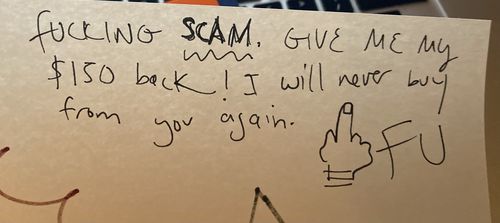 fUCKING SCAM. GIVE ME My
$150 back! I will never buy
from you again.
FU